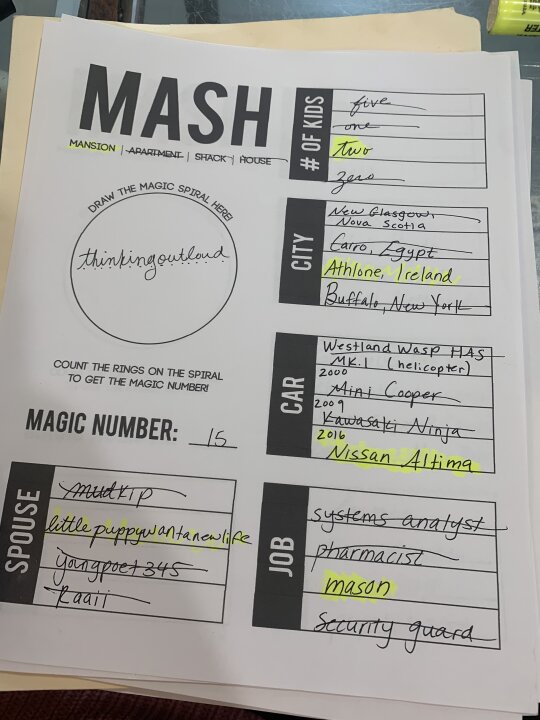 MASH
MANSION | APARTMENT | SHACK | HOUSE
DRAW THE MAGIC SPIRAL HERE!
thinkingoutloud
COUNT THE RINGS ON THE SPIRAL
TO GET THE MAGIC NUMBER!
MAGIC NUMBER: 15
# OF KIDS
five
one
two
zero
CITY
New Glasgow,
Nova Scotia
Cairo Egypt
Athlone, Ireland
Buffalo, New York
CAR
Westland Wasp HAS
MK.1 (helicopter)
2000
Mini Cooper
2009
Kawasaki Ninja
2016
Nissan Altima
SPOUSE
mudkip
littlepuppywantanewlife
youngpoet345
Raaii
JOB
systems analyst
pharmacist
mason
security guard